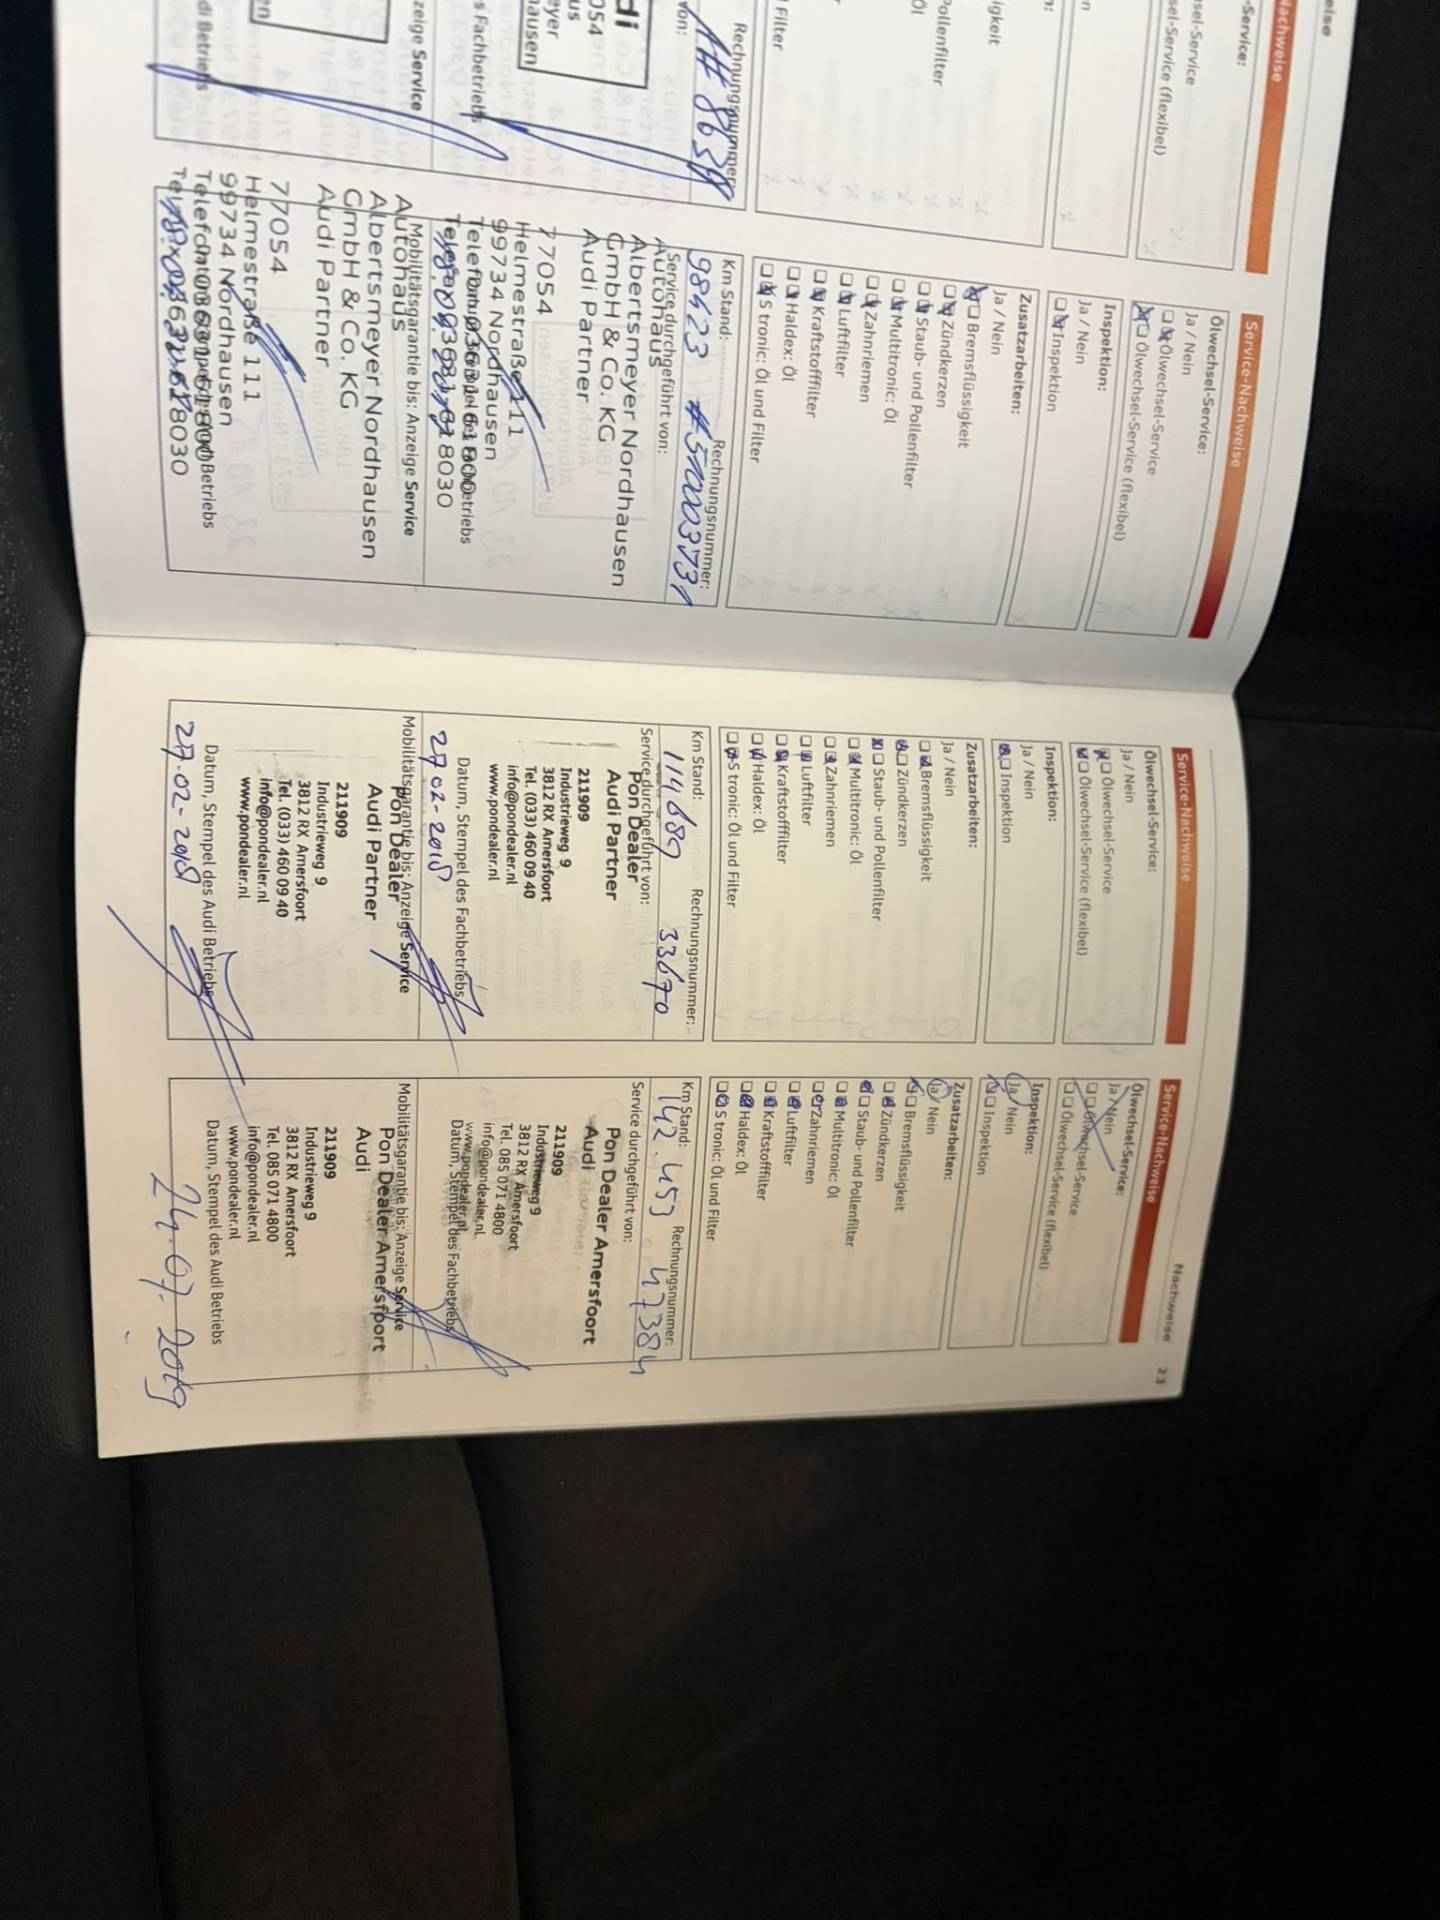 Nachweise
Service:
sel-Service
sel-Service (flexibel)
n
n:
igkeit
Pollenfilter
Öl
Filter
Rechnungsnummer:
von:
di
s Fachbetriebs
zeige Service
di Betriebs
Service-Nachweise
Ölwechsel-Service:
Ja / Nein
Ölwechsel-Service
Ölwechsel-Service (flexibel)
Inspektion:
Ja / Nein
Inspektion
Zusatzarbeiten:
Ja / Nein
Bremsflüssigkeit
Zündkerzen
Staub- und Pollenfilter
Multitronic: Öl
Zahnriemen
Luftfilter
Kraftstofffilter
Haldex: Öl
S tronic: Öl und Filter
Km Stand: Rechnungsnummer:
98423 #570003731
Service durchgeführt von:
Autohaus
Albertsmeyer Nordhausen
GmbH & Co. KG
Audi Partner
77054
Helmestraße 111
99734 Nordhausen
Mobilitätsgarantie bis: Anzeige Service
Autohaus
Albertsmeyer Nordhausen
GmbH & Co. KG
Audi Partner
77054
Helmestraße 111
99734 Nordhausen
Service-Nachweise
Ölwechsel-Service:
Ja / Nein
Ölwechsel-Service
Ölwechsel-Service (flexibel)
Inspektion:
Ja / Nein
Inspektion
Zusatzarbeiten:
Ja / Nein
Bremsflüssigkeit
Zündkerzen
Staub- und Pollenfilter
Multitronic: Öl
Zahnriemen
Luftfilter
Kraftstofffilter
Haldex: Öl
S tronic: Öl und Filter
Km Stand: Rechnungsnummer:
114689 33670
Service durchgeführt von:
Pon Dealer
Audi Partner
211909
Industrieweg 9
3812 RX Amersfoort
Tel. (033) 460 09 40
info@pondealer.nl
www.pondealer.nl
Datum, Stempel des Fachbetriebs
27-02-2018
Mobilitätsgarantie bis: Anzeige Service
Pon Dealer
Audi Partner
211909
Industrieweg 9
3812 RX Amersfoort
Tel. (033) 460 09 40
info@pondealer.nl
www.pondealer.nl
Datum, Stempel des Audi Betriebs
27-02-2018
Nachweise 23
Service-Nachweise
Ölwechsel-Service:
Ja / Nein
Ölwechsel-Service
Ölwechsel-Service (flexibel)
Inspektion:
Ja / Nein
Inspektion
Zusatzarbeiten:
Ja / Nein
Bremsflüssigkeit
Zündkerzen
Staub- und Pollenfilter
Multitronic: Öl
Zahnriemen
Luftfilter
Kraftstofffilter
Haldex: Öl
S tronic: Öl und Filter
Km Stand: Rechnungsnummer:
142.453 47384
Service durchgeführt von:
Pon Dealer Amersfoort
Audi
211909
Industrieweg 9
3812 RX Amersfoort
Tel. 085 071 4800
info@pondealer.nl
www.pondealer.nl
Datum, Stempel des Fachbetriebs
Mobilitätsgarantie bis: Anzeige Service
Pon Dealer Amersfoort
Audi
211909
Industrieweg 9
3812 RX Amersfoort
Tel. 085 071 4800
info@pondealer.nl
www.pondealer.nl
Datum, Stempel des Audi Betriebs
24.07.2019